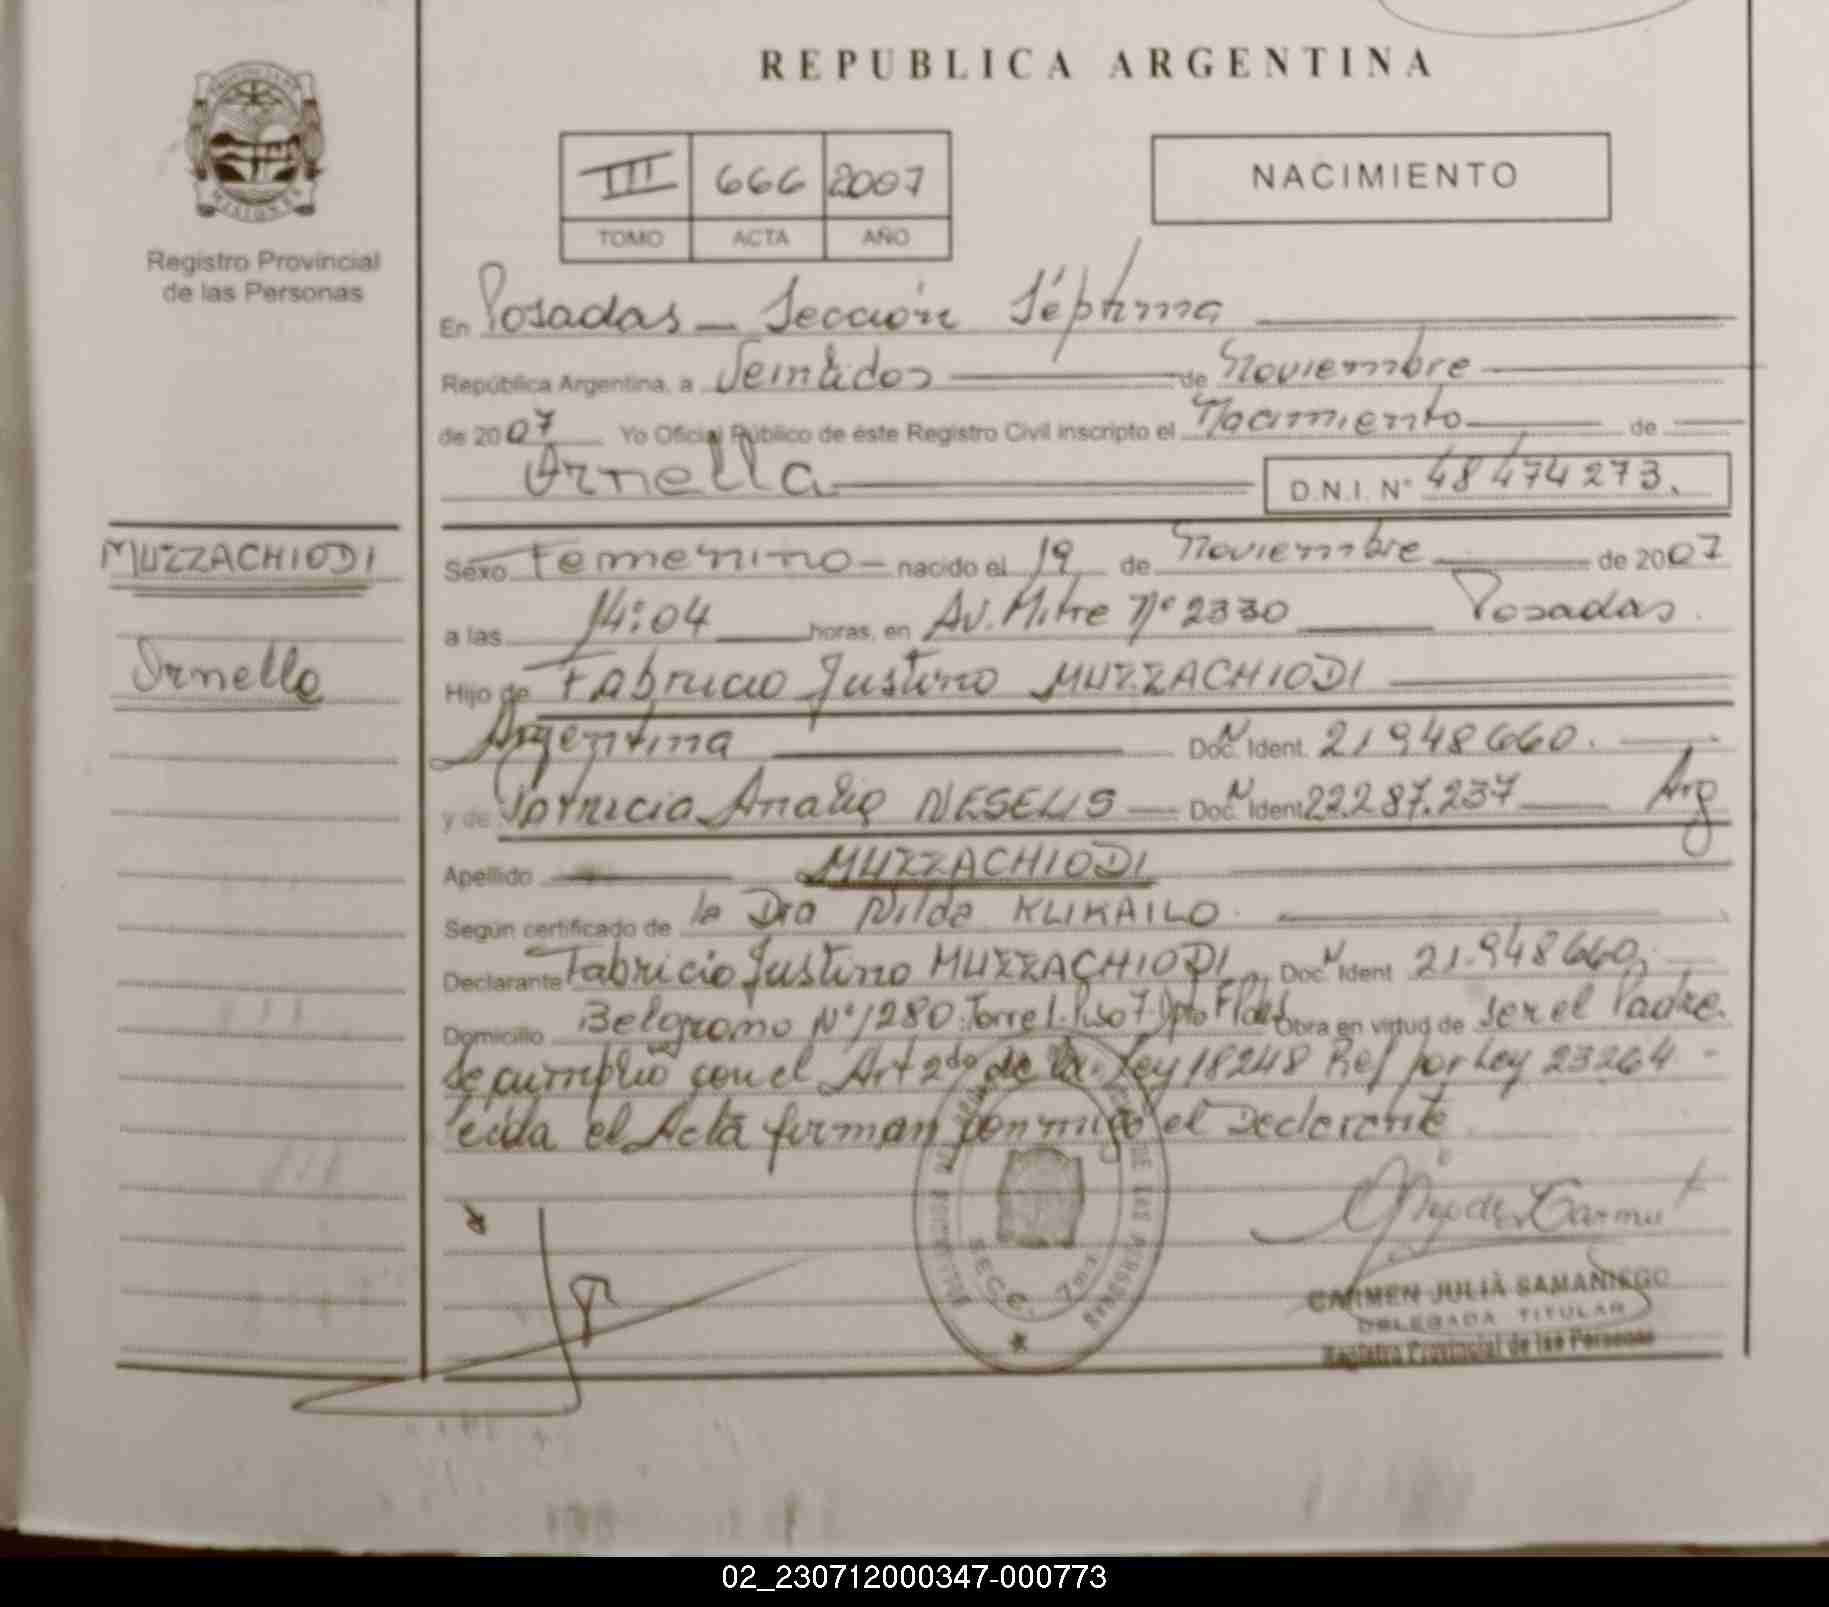 REPUBLICA ARGENTINA
MISIONES
Registro Provincial
de las Personas
III 666 2007
TOMO ACTA AÑO
NACIMIENTO
En Posadas - Sección Séptima
República Argentina, a Veintidos de Noviembre
de 2007 Yo Oficial Público de éste Registro Civil inscripto el Nacimiento de
Ornella D.N.I. N° 48474273.
MUZZACHIODI
Ornella
Sexo Femenino - nacido el 19 de Noviembre de 2007
a las 14:04 horas, en Av. Mitre Nº 2330 Posadas.
Hijo de Fabricio Justino MUZZACHIODI
Argentina Doc. N Ident. 21948660.
y de Patricia Analia NESELIS - Doc. N Ident 22.287.237 Arg
Apellido MUZZACHIODI
Según certificado de la Dra Nilda KLIKAILO.
Declarante Fabricio Justino MUZZACHIODI Doc. N Ident 21.948660.
Domicilio Belgrano Nº 1280 Torre 1. Piso 7 Dpto F Pdas Obra en virtud de ser el Padre.
Se cumplió con el Art 2do de la Ley 18248 Ref por Ley 23264 -
Leida el Acta firman conmigo el Declarante
SECC. 7ma
CARMEN JULIA SAMANIEGO
DELEGADA TITULAR
Registro Provincial de las Personas
02_230712000347-000773